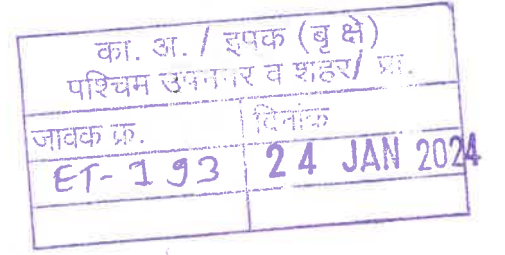 का. अ. / इपक (बृ क्षे)
पश्चिम उपनगर व शहर/ प्रा.
जावक क्र. दिनांक
ET- 193 24 JAN 2024